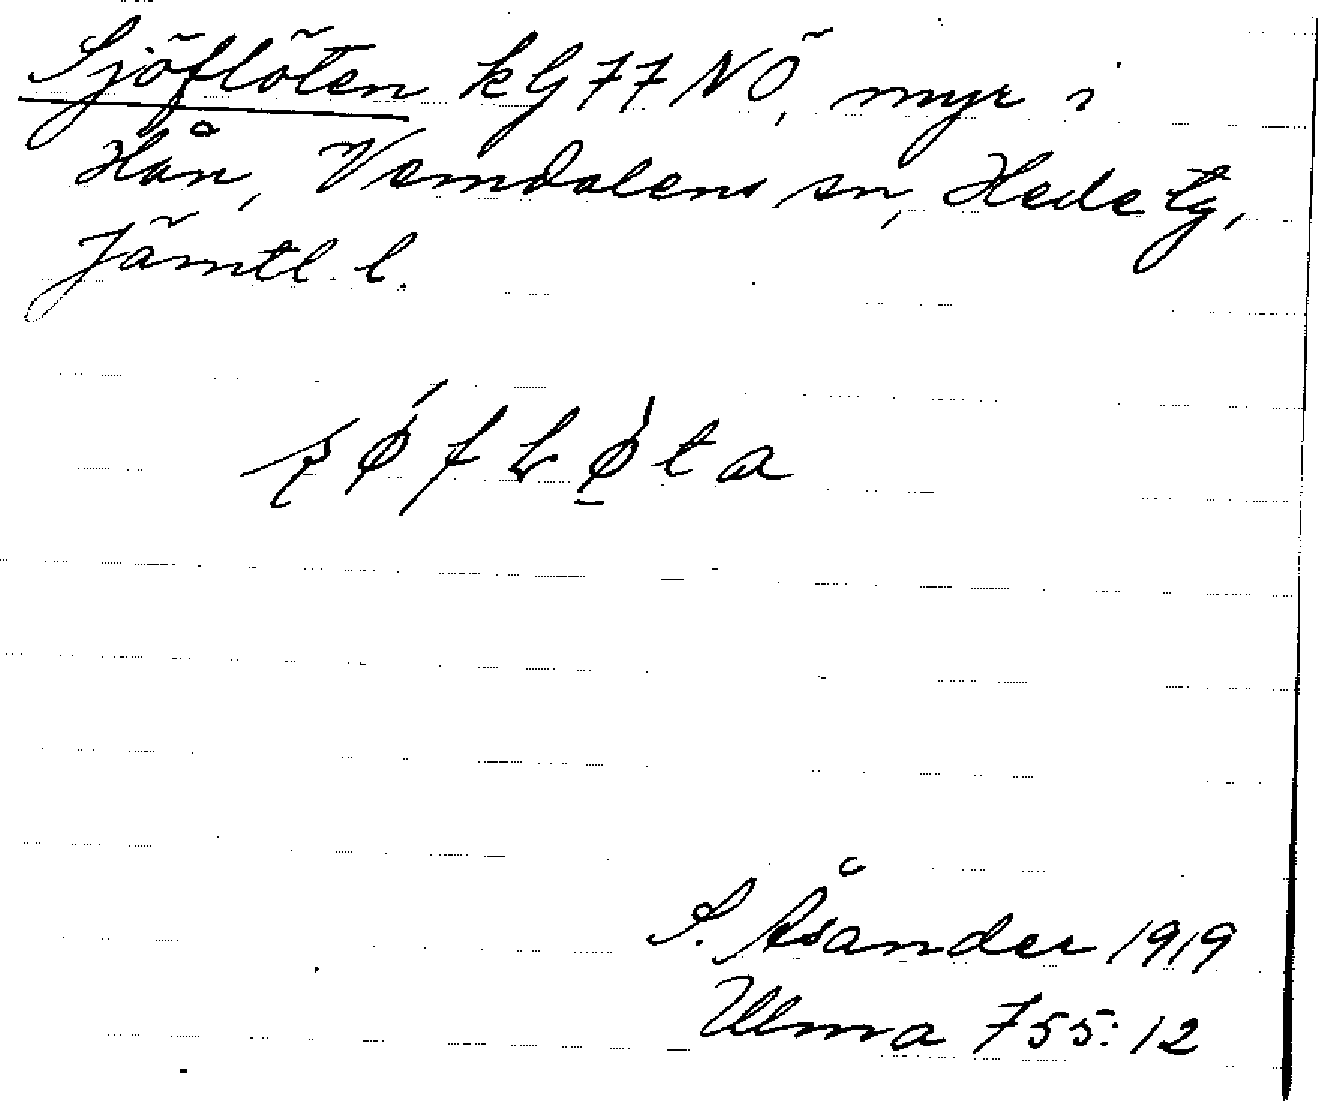 Sjöflöten kG 77 NÖ, myr i
Hån, Vemdalens sn, Hede tg,
Jämtl. l.
S. Åsander 1919
Ulma 755:12